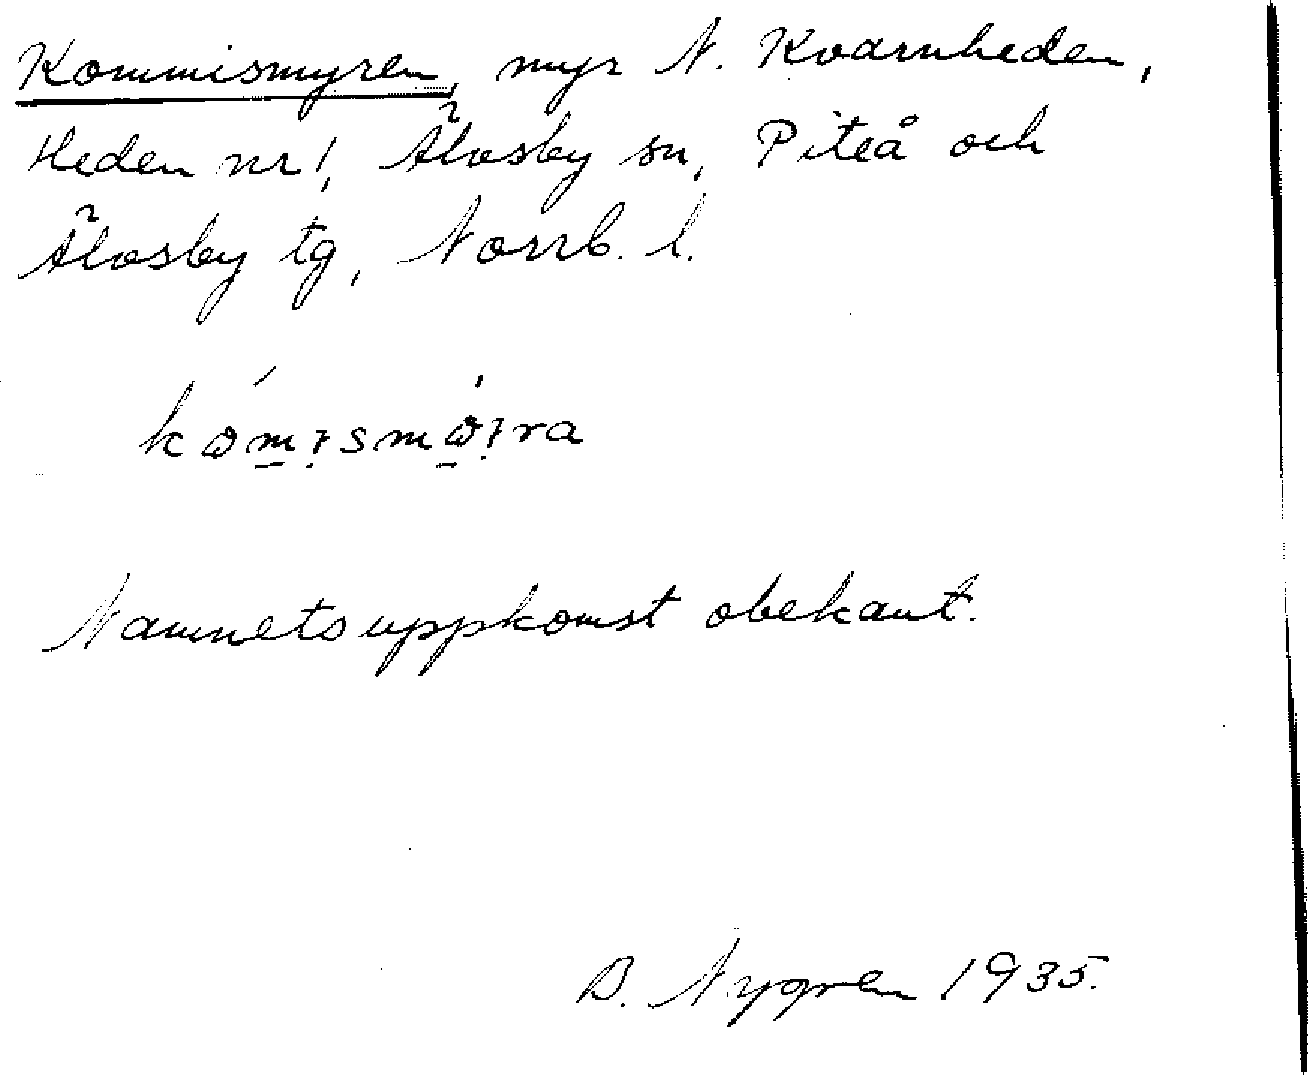 Kommismyren, myr N. Kvarnheden,
Heden nr 1, Älvsby sn, Piteå och
Älvsby tg, Norrb. l.
kǿmısmǿıra
Namnets uppkomst obekant.
B. Nygren 1935.